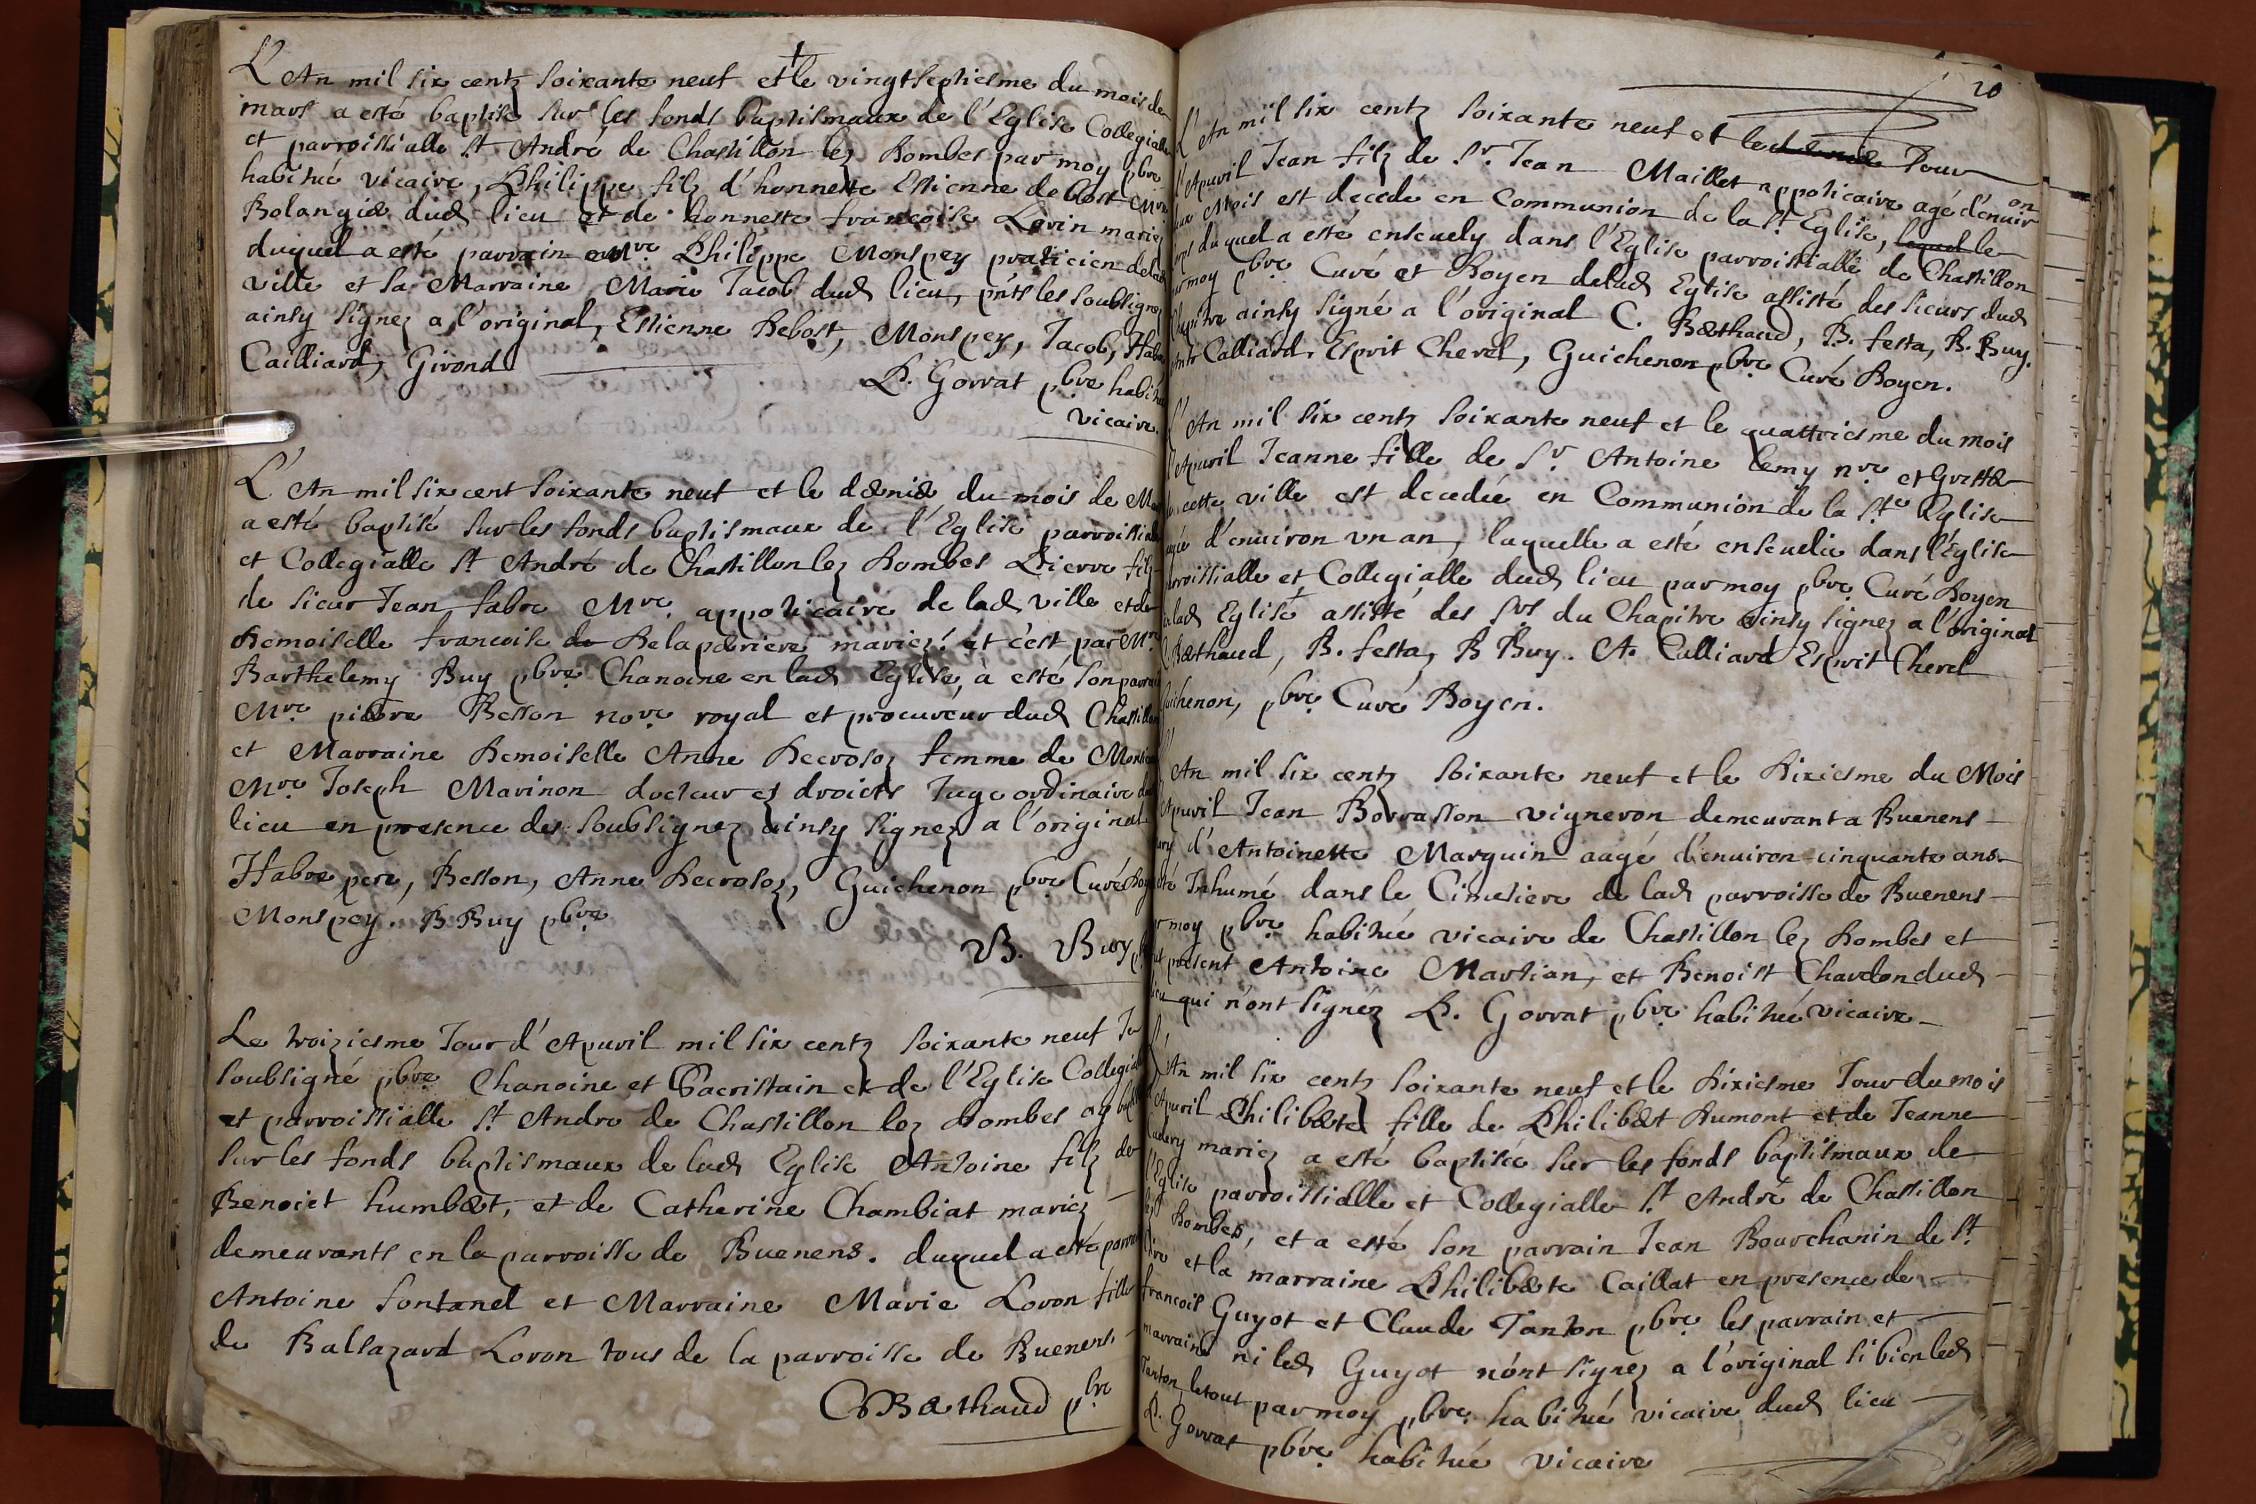 L'An mil six centz soixante neuf et le vingtseptiesme du mois de
mars a esté baptise sur les fonds baptismaux de l'Eglise Collegialle
et parroissialle St André de Chastillon lez Dombes par moy pbre
habitué vicaire, Philippe filz d'honneste Estienne de Bost
Bolangié dud lieu et de honneste francoise Lorin mariez
duquel a esté parrain Mre Philippe Monspey praticien de lad
ville et sa Marraine Marie Jacob dud lieu, pnts les soubsignez
ainsy signez a l'original, Estienne Debost, Monspey, Jacob,
Cailliard, Girond
P. Gorrat pbre habitué
vicaire.
L'An mil six cent soixante neuf et le dernier du mois de
a esté baptisé sur les fonds baptismaux de l'Eglise parroissialle
et Collegialle St André de Chastillon lez Dombes Pierre filz
de sieur Jean fabre Mre appoticaire de lad ville et de
Demoiselle francoise de Delaperriere mariez: et c'est par Mre
Barthelemy Buy pbre Chanoine en lad Eglise, à esté son parrain
Mre pierre Besson nore royal et procureur dud Chastillon
et Marraine Demoiselle Anne Decrosoz femme de
Mre Joseph Marinon docteur es droicts Juge ordinaire
lieu en presence des soubsignez ainsy signez a l'original
Habre pere, Besson, Anne Decrosoz, Guichenon pbre Curé
Monspey. B Buy pbre
B. Buy
Le troiziesme Jour d'Apuril mil six centz soixante neuf Je
soubsigné pbre Chanoine et Sacristain de l'Eglise Collegialle
et parroissialle St Andre de Chastillon lez Dombes ay
sur les fonds baptismaux de lad Eglise Antoine filz de
Benoict humbert, et de Catherine Chambiat mariez
demeurants en la parroisse de Buenens. duquel a esté parrain
Antoine fontanel et Marraine Marie Loron fille
de Baltazard Loron tous de la parroisse de Buenens
CBerthaud pbre
20
L'An mil six centz soixante neuf et le Jour
d'Apuril Jean filz de Sr. Jean Maillet appoticaire agé d'enuiron
deux Mois est decedé en Communion de la Ste Eglise, lequel le
corps duquel a esté enseuely dans l'Eglise parroissialle de Chastillon
par moy pbre Curé et Doyen de lad Eglise assisté des sieurs dud
Chapitre ainsy signé a l'original C. Berthaud, B. festa, B. Buy.
Calliard, Esprit Cheret, Guichenon pbre Curé Doyen.
L'An mil six centz soixante neuf et le quattriesme du mois
d'Apuril Jeanne fille de Sr. Antoine Remy nre et Greffier
de cette ville est decedée en Communion de la Ste Eglise
agée d'enuiron vn an, laquelle a esté enseuelie dans l'Eglise
parroissialle et Collegialle dud lieu par moy pbre Curé Doyen
de lad Eglise assisté des Srs du Chapitre ainsy signez a l'original
C Berthaud, B. festa, B Buy. A. Calliard Esprit Cheret
Guichenon, pbre Curé Doyen.
L'An mil six centz soixante neuf et le Dixiesme du Mois
d'Apuril Jean Borrasson vigneron demeurant a Buenens
mary d'Antoinette Marguin aagé d'enuiron cinquante ans
esté Inhumé dans le Cimetiere de lad parroisse de Buenens
par moy pbre habitué vicaire de Chastillon lez Dombes et
present Antoine Martian, et Benoist Chardon dud
lieu qui n'ont signéz P. Gorrat pbre habitué vicaire
L'An mil six centz soixante neuf et le Dixiesme Jour du mois
d'Apuril Philiberte fille de Philibert Dumont et de Jeanne
mariez a esté baptisée sur les fonds baptismaux de
l'Eglise parroissialle et Collegialle St André de Chastillon
lez Dombes, et a esté son parrain Jean Bourchanin de St.
et la marraine Philiberte Caillat en presence de
francois Guyot et Claude Tanton pbre les parrain et
marraine ni led Guyot n'ont signez a l'original si bien led
Tanton, le tout par moy pbre habitué vicaire dud lieu
P. Gorrat pbre habitué vicaire